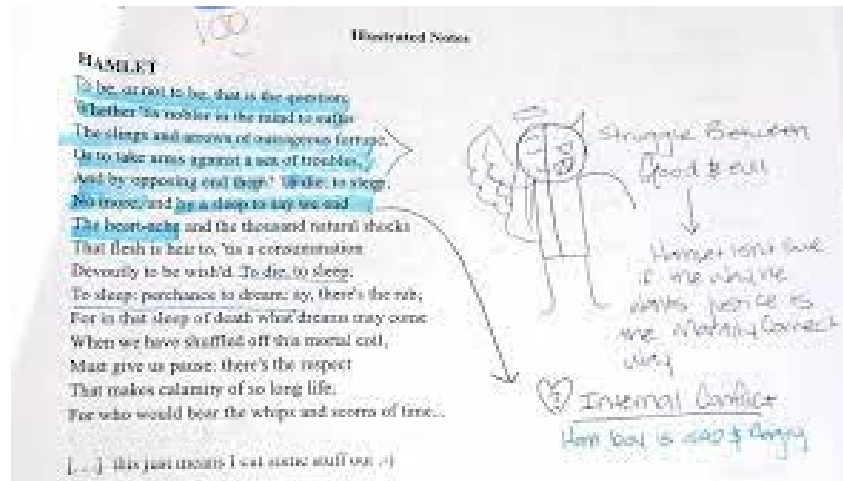 100
Illustrated Notes
HAMLET
To be, or not to be, that is the question:
Whether 'tis nobler in the mind to suffer
The slings and arrows of outrageous fortune,
Or to take arms against a sea of troubles,
And by opposing end them? To die, to sleep,
No more; and by a sleep to say we end
The heart-ache and the thousand natural shocks
That flesh is heir to, 'tis a consummation
Devoutly to be wish'd. To die, to sleep;
To sleep: perchance to dream: ay, there's the rub;
For in that sleep of death what dreams may come
When we have shuffled off this mortal coil,
Must give us pause: there's the respect
That makes calamity of so long life;
For who would bear the whips and scorns of time...
[...] this just means I cut some stuff out :-)
Struggle Between
Good & evil
Hamlet isn't sure
if the way he
wants justice is
the morally correct
way
Internal Conflict
Ham boy is sad & Angry